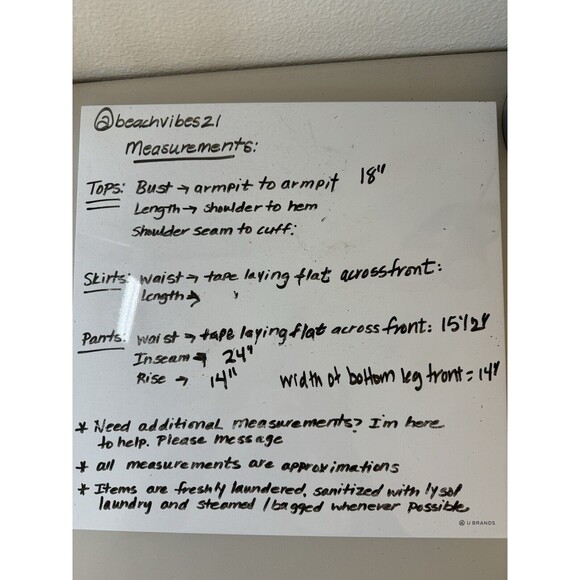 @beachvibes21
Measurements:
Tops: Bust → armpit to armpit 18"
Length → shoulder to hem
Shoulder seam to cuff:
Skirts: waist → tape laying flat across front:
Length →
Pants: waist → tape laying flat across front: 15 1/2"
Inseam → 24"
Rise → 14" width of bottom leg front = 14"
* Need additional measurements? I'm here
to help. Please message
* all measurements are approximations
* Items are freshly laundered, sanitized with lysol
laundry and steamed / bagged whenever possible
U BRANDS